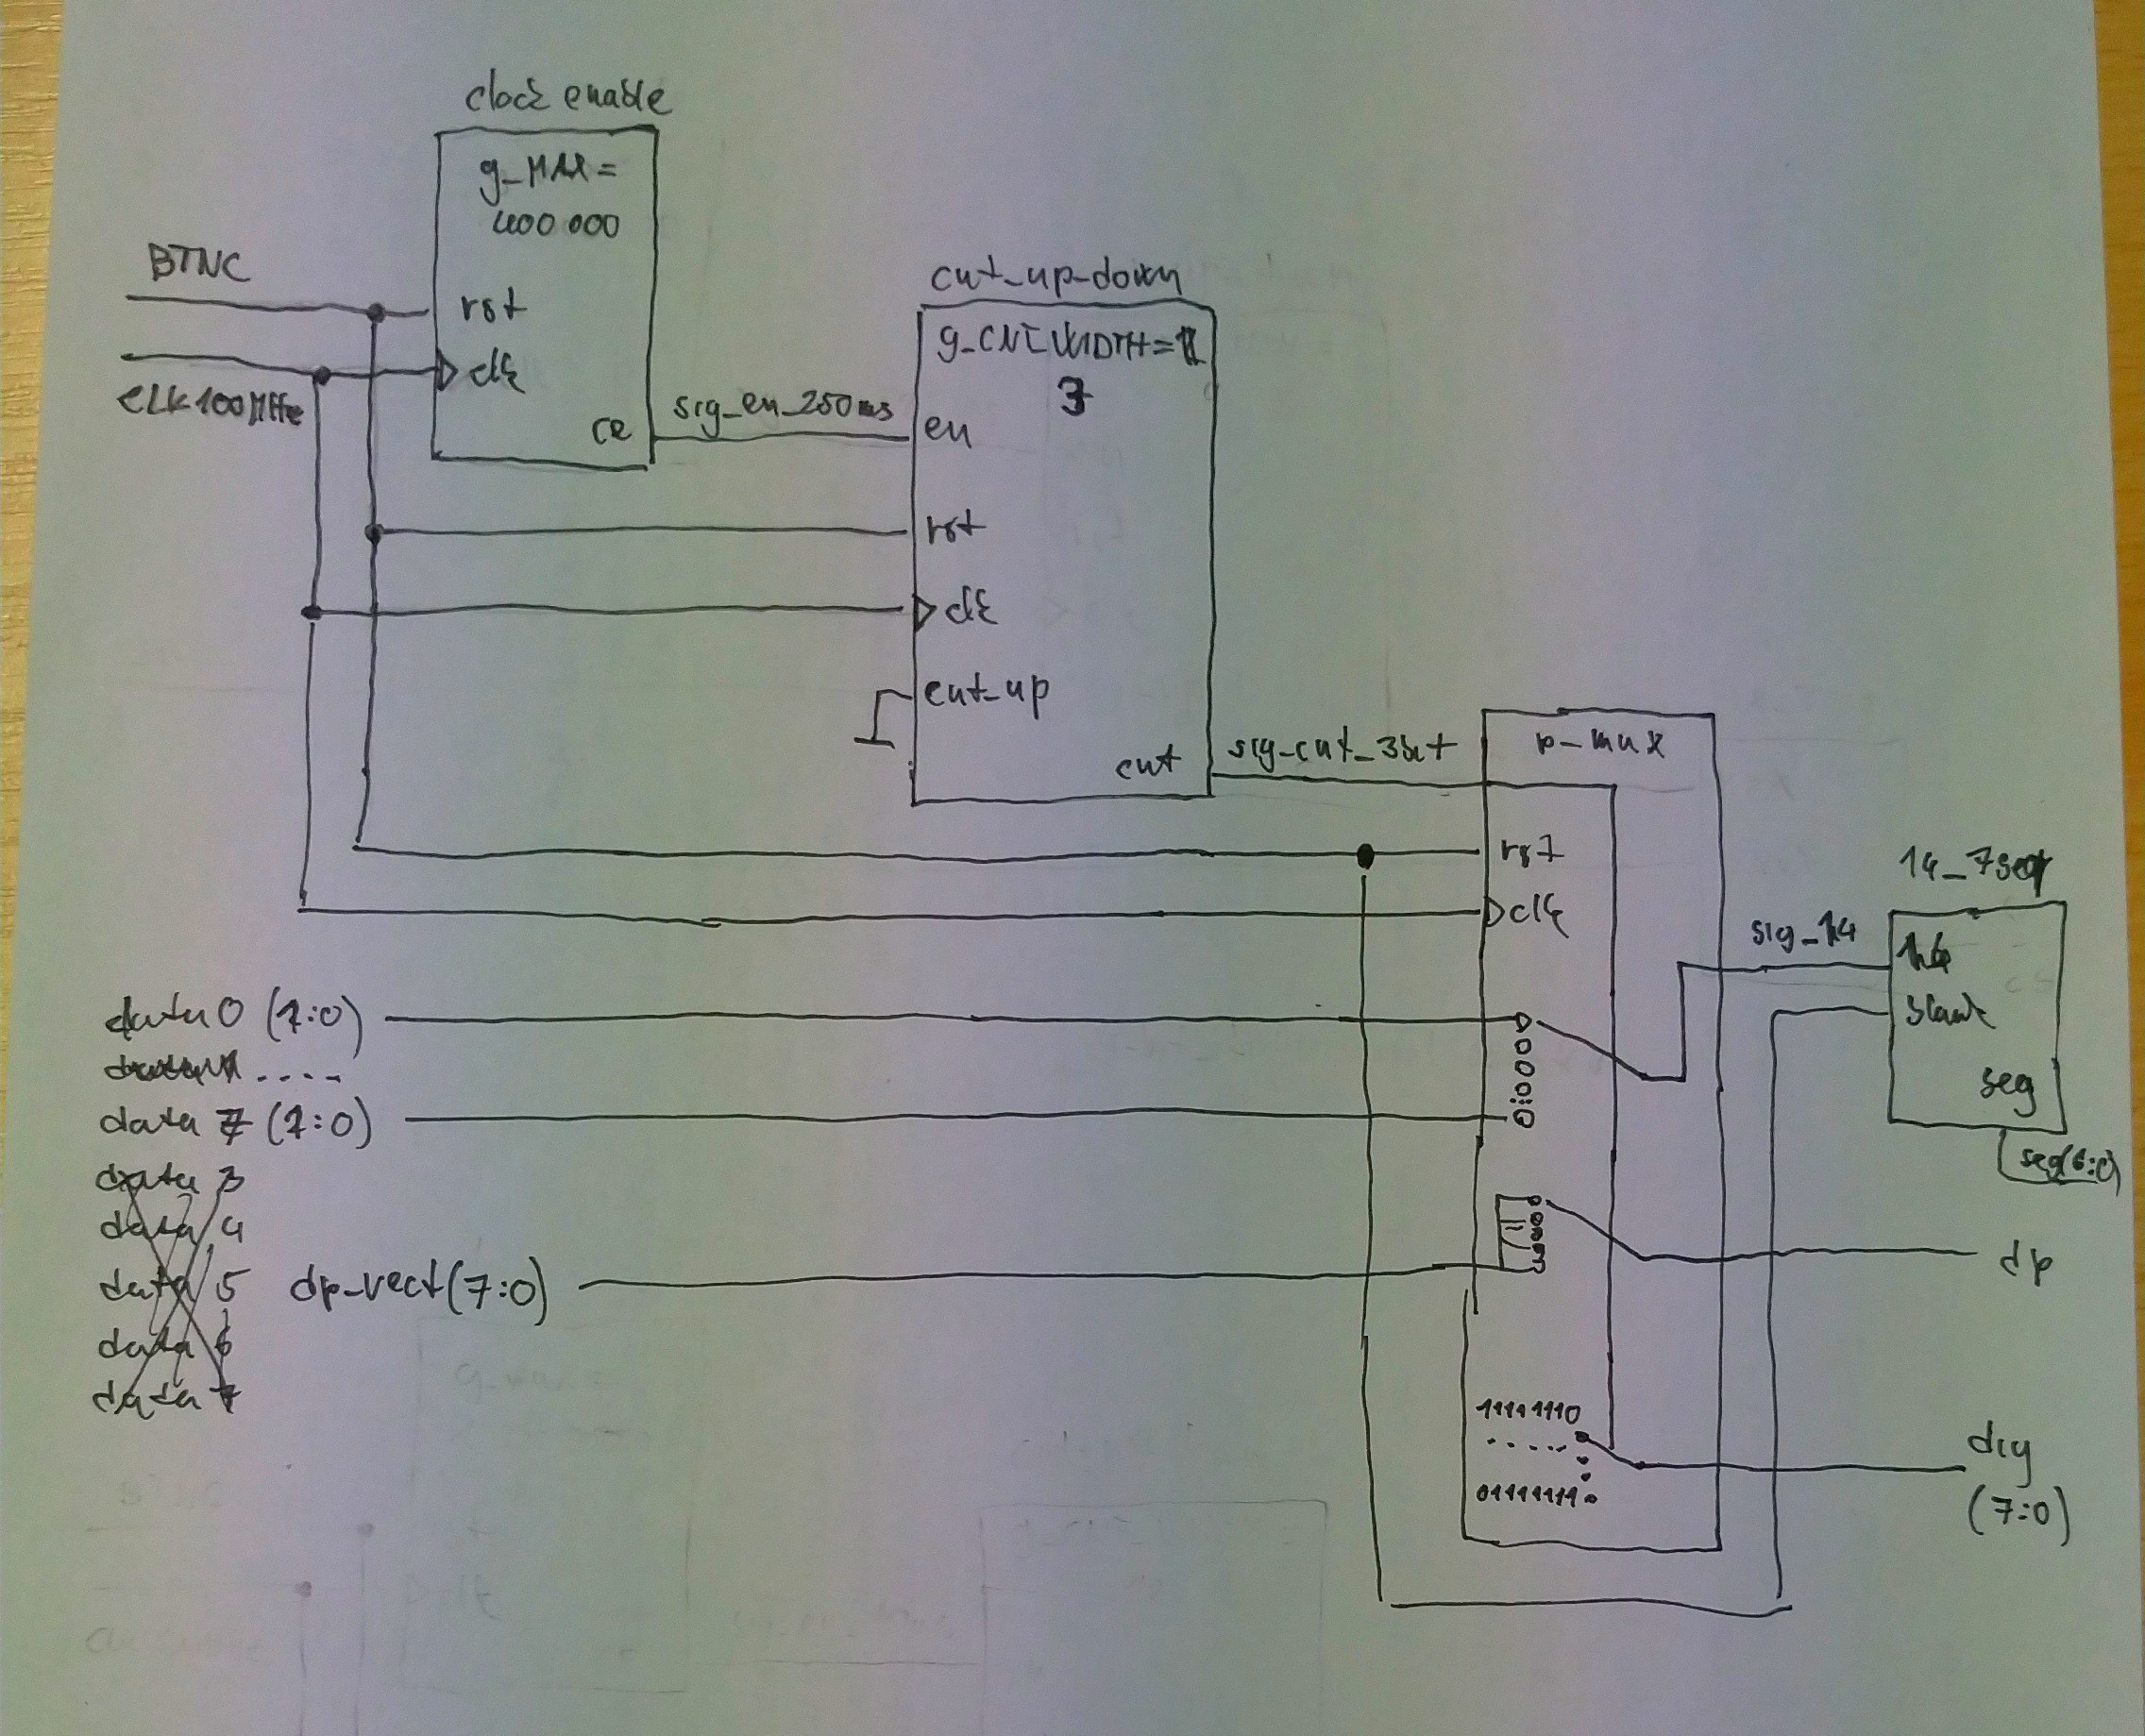 clock enable
g_MAX =
400 000
BTNC
rst
clk
CLK100MHz
ce
sig_en_250ms
cnt_up_down
g_CNT WIDTH=
3
en
rst
clk
cnt_up
cnt
sig_cnt_3bit
p_mux
rst
clk
14_7seg
sig_14
blank
seg
seg(6:0)
data 0 (7:0)
....
data 7 (7:0)
data 3
data 4
data 5
data 6
data 7
dp_vect(7:0)
dp
11111110
.....
01111111
dig
(7:0)